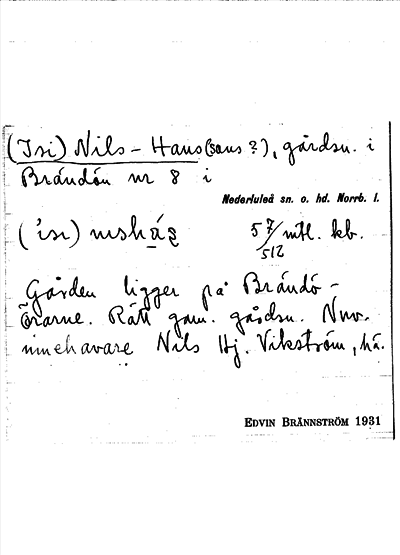 (Isi) Nils-Hans (sons?), gårdsn. i
Brändön nr 8 i
Nederluleå sn. o. hd. Norrb. l.
57/512 mtl. kb.
Gården ligger på Brändö-
örarne. Rätt gam. gårdsn. Nuv.
innehavare Nils Hj. Vikström, hä.
EDVIN BRÄNNSTRÖM 1931